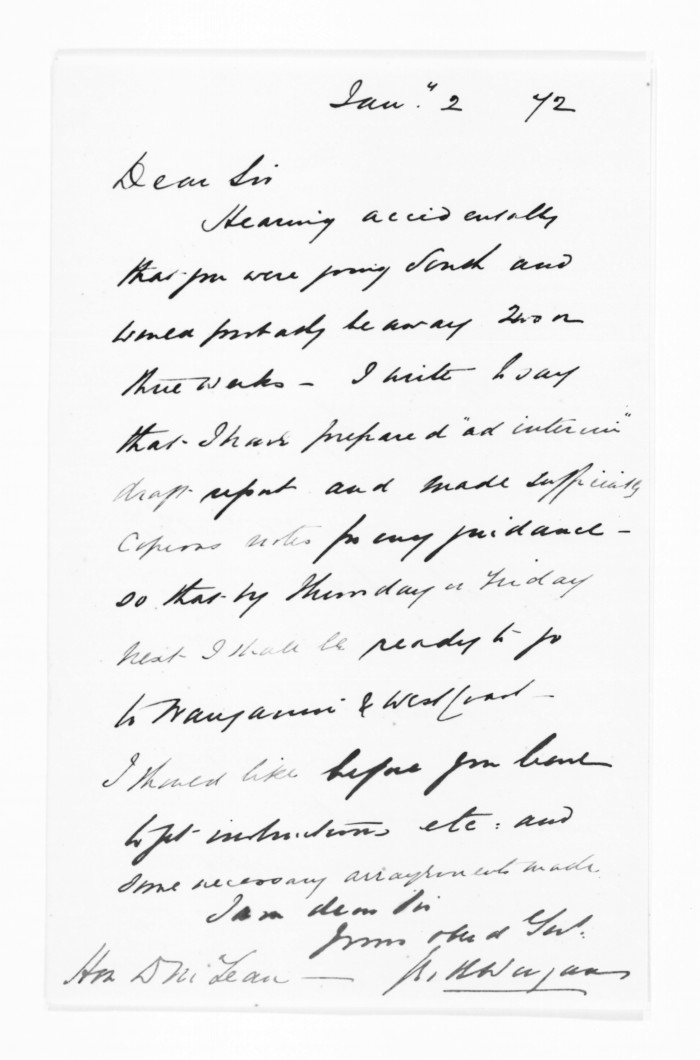 Jany. 2 72
Dear Sir
Hearing accidentally
that you were going South and
would probably be away two or
three weeks - I write to say
that I have prepared "ad interim"
draft report and made sufficiently
copious notes for my guidance -
so that by Thursday or Friday
next I shall be ready to go
to Wanganui & West Coast -
I should like before you leave
to get instructions etc: and
some necessary arrangements made.
I am dear Sir
Yours obed Svt.
Hon D McLean -